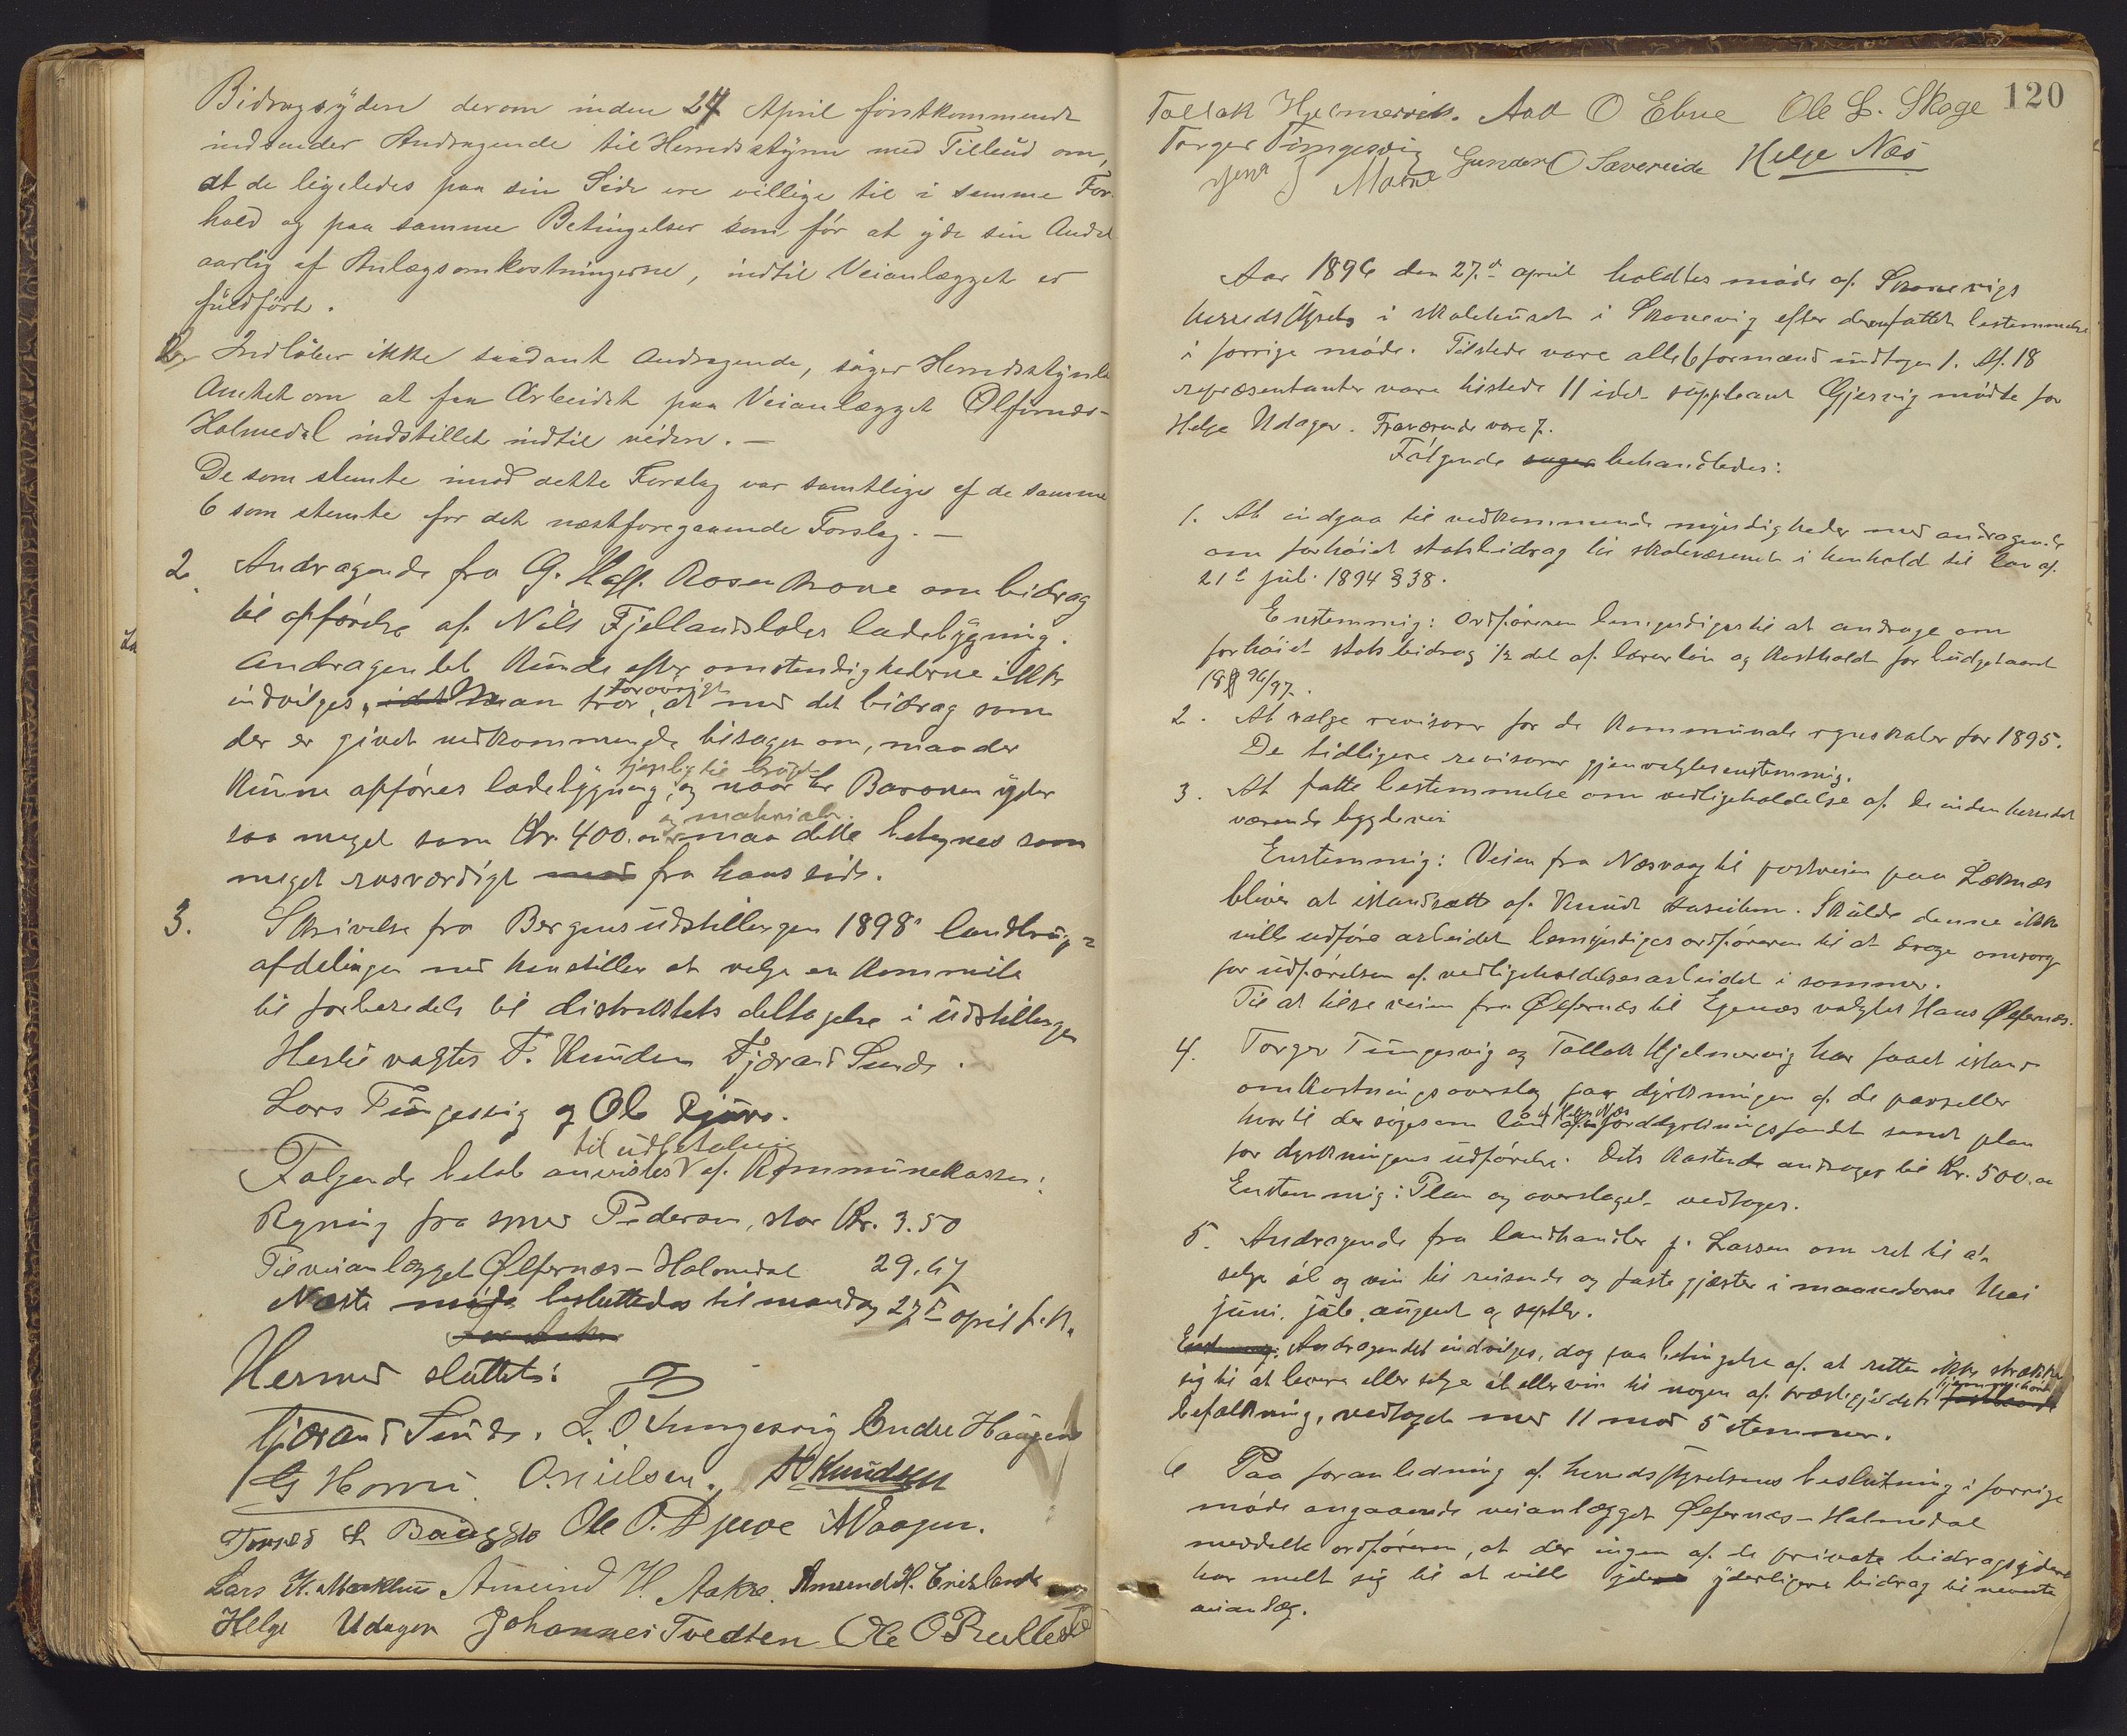 Bidragsydere derom inden 24 April förstkommende
indsender Andragende til Herredsstÿret med Tilbud om,
at de ligeledes paa sin Side ere villige til i samme For-
hold og paa samme Betingelser som för at yde sin Andel
aarlig af Anlægsomkostningerne, indtil Veianlægget er
fuldfört.
Indlöber ikke saadant Andragende, söger Herredsstÿret
Amtet om at faa Arbeidet paa Veianlægget Ølfernes-
Holmedal indstillet indtil videre. —
De som stemte imod dette Forslag var samtlige af de samme
6 som stemte for det næstforegaaende Forslag. —
2. Andragende fra G. Hoff Rosenkrone om bidrag
til opförelse af Nils Fjellandsbölets ladebÿgning.
Andragendet kunde efter omstendighederne ikke
indvilges, idet Man tror forövrigt, at med det bidrag som
der er givet vedkommende tilsagn om, maa der
kunne opföres ladebÿgning, tjenlig til brug og naar hr Baronen ÿder
saa meget som Kr. 400.00 og materialer maa dette betegnes som
meget rosværdigt med fra hans side.
3. Skrivelse fra Bergensudstillingen 1898s landbrugs-
afdelingen med henstillen at velge en Kommite
til forberedelse til distriktets deltagelse i udstillingen
Hertil valgtes T. Knudsen Tjæran Sunde.
Lars Tungesvig og Ole Djuve.
Følgende beløb anvistes til udbetaling af Kommunekassen:
Regning fra smed Pedersen, stor Kr. 3.50
Til veianlægget Ølfernæs-Holmedal 29.67
Næste möde besluttedes til mandag 27de april f.k.
Hermed sluttet:
Tjæran Sunde. L. O Tungesvig Endre Haugen
G Horvei. O. Nielsen. T Knudsen
Tormod L Baugsto Ole O. Djuve A Vaagen.
Lars K. Markhus Amund H. Aakre. Amund H. Eriksland
Helge Udagen Johannes Tvedten Ole O Rullestad
120
Tollak Hjelmervik. Aad O Ebne Ole L. Skoge
Torger Tungesvig Gunder O Sævereide Helge Næs
Jens J Matre
Aar 1896 den 27.de april holdtes möde af Skonevigs
herredsstÿrelse i skolehuset i Skonevig efter derom fattet bestemmelse
i forrige möde. Tilstede vare alle 6 formænd undtagen 1. Af 18
repræsentanter vare tilstede 11 idet suppleant Gjersvig mödte for
Helge Udagen. Fraværende vare 7.
Fölgende sager behandledes:
1. At indgaa til vedkommende mÿndigheder med andragende
om forhöiet statsbidrag til skolevæsenet i henhold til lov af
21de juli 1894 § 38.
Enstemmig: Ordföreren bemÿndiges til at andrage om
forhöiet statsbidrag 1/2 del af lærerlön og kosthold for budgetaaret
18 96/97.
2. At vælge revisorer for de kommunale regnskaber for 1895.
De tidligere revisorer gjenvalgtes enstemmig.
3. At fatte bestemmelse om vedligeholdelse af de inden herredet
værende bygdeveie
Enstemmig: Veien fra Næsvaag til postveien paa Leknes
bliver at istandsætte af Knud Aaseim. Skulde denne ikke
ville udföre arbeidet bemÿndiges ordföreren til at drage omsorg
for udförelsen af vedligeholdelsesarbeidet i sommer.
Til at tilse veien fra Ølfernæs til Egenæs valgtes Hans Ølfernæs.
4. Torger Tungesvig og Tollak Hjelmervig har faaet istand
omkostningsoverslag paa dÿrkningen af de parseller
hvortil der söges om laan af jorddyrkningsfondet samt plan
for dyrkningens udförelse. Dets kostende andrages til Kr. 500.00
Enstemmig: Plan og overslaget vedtages.
5. Andragende fra landhandler J. Larsen om ret til at
selge öl og vin til reisende og faste gjæster i maanederne Mai
juni, juli, august og septbr.
Enstemmig: Andragendet indvilges, dog paa betingelse af at retten ikke strækker
sig til at levere eller selge öl eller vin til nogen af præstegjeldets hjemmehörende
befolkning, vedtaget med 11 mod 5 stemmer.
6 Paa foranledning af herredsstÿrelsens beslutning i forrige
möde angaaende veianlægget Ølfernæs-Holmedal
meddelte ordföreren, at der ingen af de private bidragsÿdere
har meldt sig til at ville ÿde ÿderligere bidrag til nævnte
veianlæg.